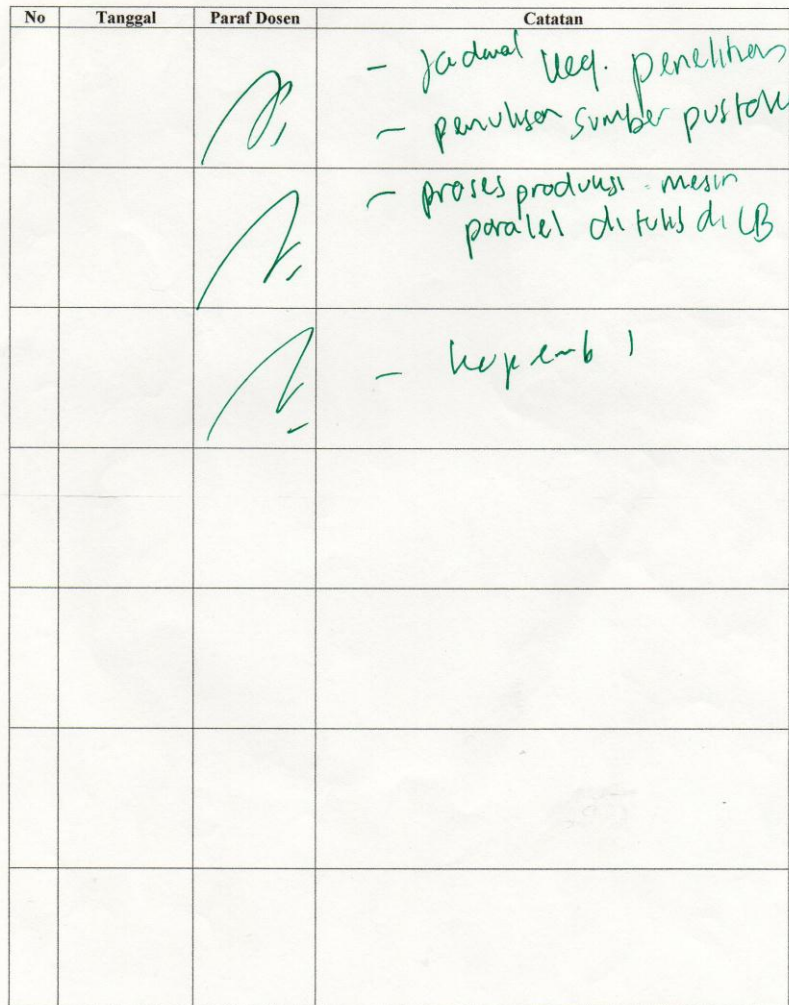 No Tanggal Paraf Dosen Catatan
- Jadwal keg. penelitian
- penulisan sumber pustaka
- proses produksi mesin
paralel ditulis di LB
- ke pemb 1